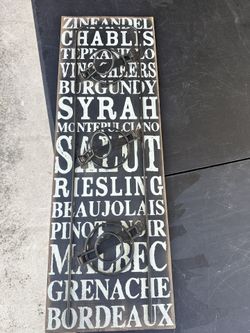 ZINFANDEL
CHABLIS
TEPRANILLO
VINS CHEERS
BURGUNDY
SYRAH
MONTEPULCIANO
SALUT
RIESLING
BEAUJOLAIS
PINOT NOIR
MALBEC
GRENACHE
BORDEAUX